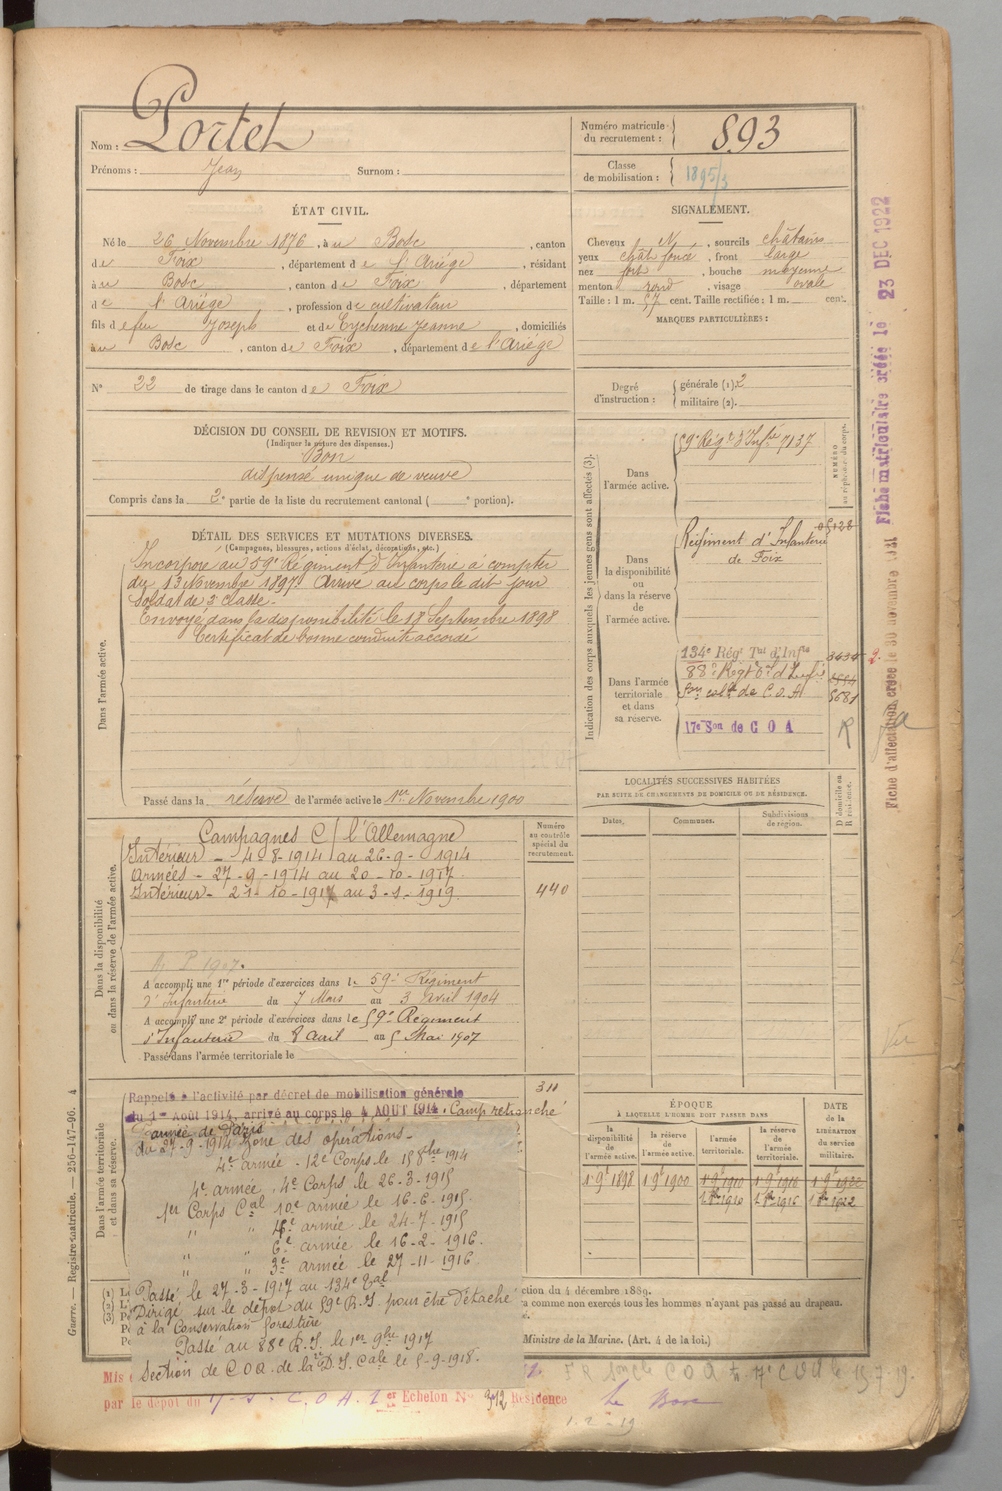 Nom : Portet
Prénoms : Jean Surnom :
Numéro matricule du recrutement : 893
Classe de mobilisation : 1895/3
ÉTAT CIVIL.
Né le 26 Novembre 1876, à u Bosc, canton
de Foix, département de l'Ariége, résidant
à u Bosc, canton de Foix, département
de l'Ariége, profession de cultivateur
fils de feu Joseph et de Eychenne Jeanne, domiciliés
à u Bosc, canton de Foix, département de l'Ariége
N° 22 de tirage dans le canton de Foix
SIGNALEMENT.
Cheveux N, sourcils châtains
yeux chât foncé, front large
nez fort, bouche moyenne
menton rond, visage ovale
Taille : 1 m. 57 cent. Taille rectifiée : 1 m. cent.
MARQUES PARTICULIÈRES :
Degré d'instruction : générale (1) 2
militaire (2).
DÉCISION DU CONSEIL DE REVISION ET MOTIFS.
(Indiquer la nature des dispenses.)
Bon
dispensé unique de veuve
Compris dans la 2e partie de la liste du recrutement cantonal ( e portion).
DÉTAIL DES SERVICES ET MUTATIONS DIVERSES.
(Campagnes, blessures, actions d'éclat, décorations, etc.)
Dans l'armée active.
Incorporé au 59e Régiment d'Infanterie à compter
du 13 Novembre 1897. Arrivé au corps le dit jour
soldat de 2e classe.
Envoyé dans la disponibilité le 18 Septembre 1898
Certificat de bonne conduite accordé
Passé dans la réserve de l'armée active le 1er Novembre 1900
Dans la disponibilité ou dans la réserve de l'armée active.
Campagnes C/ l'Allemagne
Intérieur - 4-8-1914 au 26-9-1914
Armées - 27-9-1914 au 20-10-1917
Intérieur - 21-10-1917 au 3-1-1919
Numéro au contrôle spécial du recrutement.
440
A accompli une 1re période d'exercices dans le 59e Régiment
d'Infanterie du 7 Mars au 3 avril 1904
A accompli une 2e période d'exercices dans le 59e Régiment
d'Infanterie du 8 avril au 5 Mai 1907
Passé dans l'armée territoriale le
311
Dans l'armée territoriale et dans sa réserve.
Rappelé à l'activité par décret de mobilisation générale
du 1er Août 1914, arrivé au corps le 4 AOUT 1914. Camp retranché
armée de Paris
du 27-9-1914 Zone des opérations -
4e armée - 12e Corps le 15 8bre 1914
4e armée. 4e Corps le 26-3-1915
1er Corps Cal 10e armée le 16-6-1915.
" " 4e armée le 24-7-1915
" " 6e armée le 16-2-1916.
" " 3e armée le 27-11-1916
Passé le 27-3-1917 au 134e tal
Dirigé sur le dépôt du 59e R.I. pour être détaché
à la Conservation forestière
Passé au 88e R.I. le 1er 9bre 1917
Section de COA de la D.I. Cale le 5-9-1918.
Indication des corps auxquels les jeunes gens sont affectés (3).
NUMÉRO au répertoire du corps.
Dans l'armée active.
59e Régt d'Infie 7137
Dans la disponibilité ou dans la réserve de l'armée active.
Régiment d'Infanterie
de Foix
05128
Dans l'armée territoriale et dans sa réserve.
134e Régt Tal d'Infie
88e Régt tal d'Infie
Son colle de C.O.A
5681
17e Son de C O A
R
LOCALITÉS SUCCESSIVES HABITÉES
PAR SUITE DE CHANGEMENTS DE DOMICILE OU DE RÉSIDENCE.
Dates. Communes. Subdivisions de région. D domicile ou R résidence.
ÉPOQUE
À LAQUELLE L'HOMME DOIT PASSER DANS
la disponibilité de l'armée active. la réserve de l'armée active. l'armée territoriale. la réserve de l'armée territoriale.
DATE de la LIBÉRATION du service militaire.
1 9e 1898 1 9e 1900 1 9e 1910 1 9e 1916 1 9e 1922
1 8bre 1910 1 8bre 1916 1 8bre 1922
ction du 4 décembre 1889.
ra comme non exercés tous les hommes n'ayant pas passé au drapeau.
Ministre de la Marine. (Art. 4 de la loi.)
Mis
par le dépot du C.O.A. 1er Echelon N° 312 Résidence le Bosc
1-2-19
Guerre. — Registre matricule. — 256-147-96. 4
Fiche matriculaire créée le 23 DEC 1922
Fiche d'affectation créée le 30 novembre